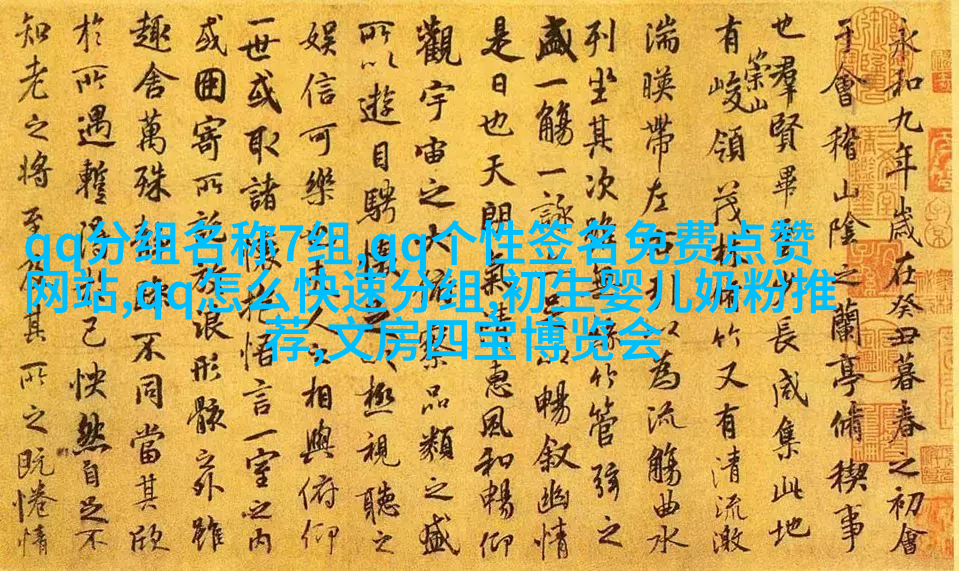 qq分组名称7组,qq个性签名免费点赞
网站,qq怎么快速分组,初生婴儿奶粉推
荐,文房四宝博览会
永和九年歲在癸丑暮春之初會
于會稽山陰之蘭亭脩稧事
也羣賢畢至少長咸集此地
有崇山峻領茂林脩竹又有清流激
湍暎帶左右引以為流觴曲水
列坐其次雖無絲竹管弦之
盛一觴一詠亦足以暢敘幽情
是日也天朗氣清惠風和暢仰
觀宇宙之大俯察品類之盛
所以遊目騁懷足以極視聽之
娛信可樂也夫人之相與俯仰
一世或取諸懷抱悟言一室之內
或因寄所託放浪形骸之外雖
趣舍萬殊靜躁不同當其欣
於所遇暫得於己怏然自足不
知老之將至及其所之既惓情